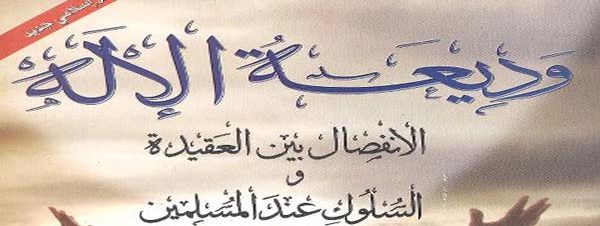 إسلامي جديد
وديعة الإله
الانفصال بين العقيدة
و
السلوك عند المسلمين